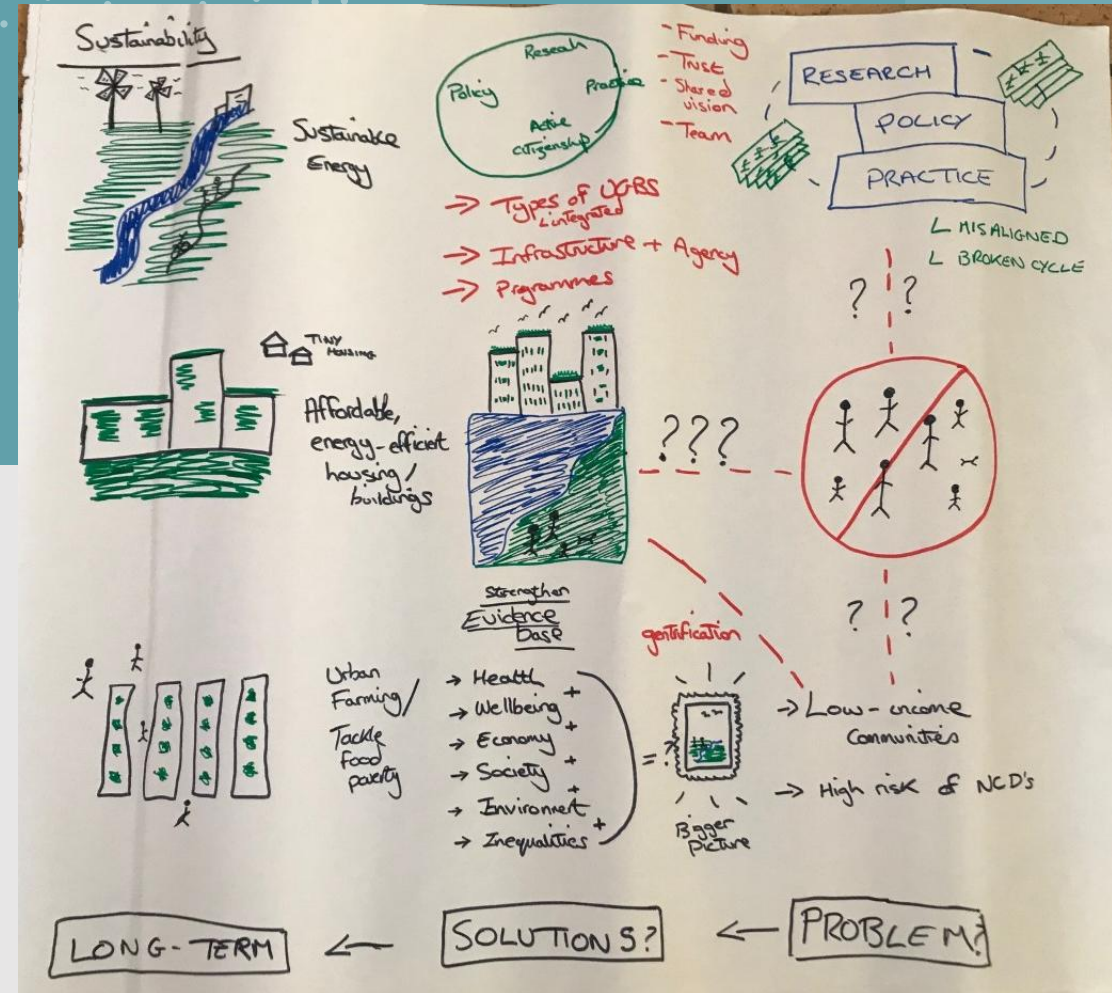 Sustainability
Sustainable
Energy
TINY
HOUSING
Affordable,
energy-efficient
housing/
buildings
Urban
Farming/
Tackle
food
poverty
LONG-TERM
Reseach
Policy
Practice
Active
citizenship
- Funding
- Trust
- Shared
vision
- Team
→ Types of UGBS
L integrated
→ Infrastructure + Agency
→ Prgrammes
???
strengthen
Evidence
base
→ Health
+
→ Wellbeing
+
→ Economy
+
→ Society
+
→ Environment
+
→ Inequalities
= ?
gentrification
Bigger
Picture
SOLUTIONS?
←
RESEARCH
POLICY
PRACTICE
L MISALIGNED
L BROKEN CYCLE
? ?
? ?
→ Low-income
Communities
→ High risk of NCD's
PROBLEM?
←